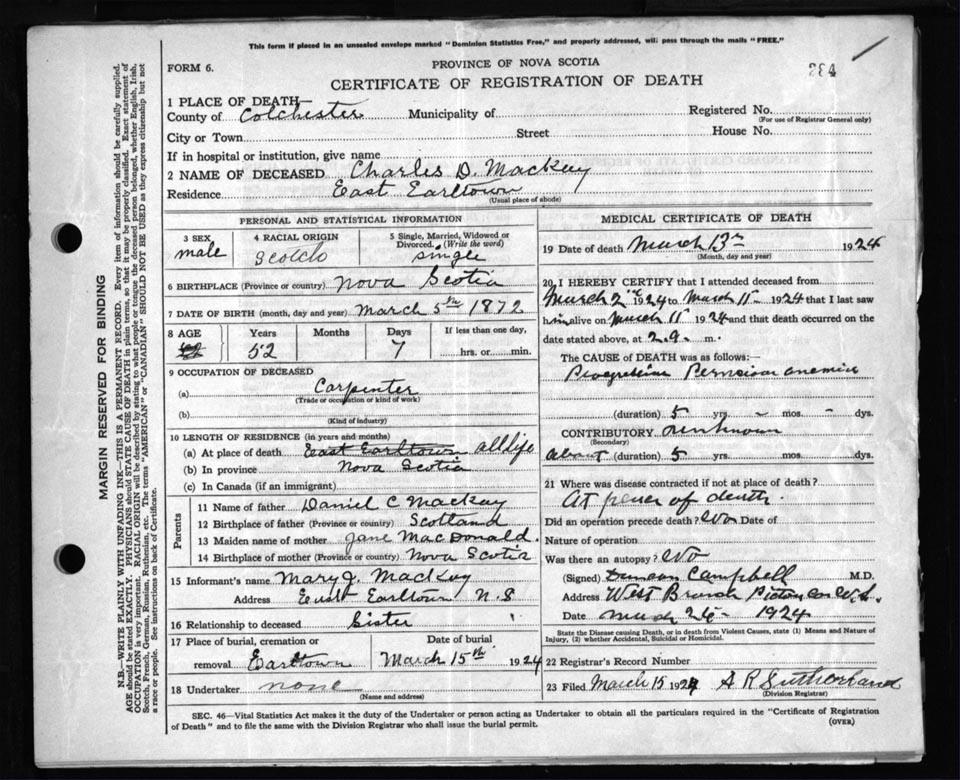 This form if placed in an unsealed envelope marked "Dominion Statistics Free," and properly addressed, will pass through the mails "FREE."
FORM 6.
PROVINCE OF NOVA SCOTIA
CERTIFICATE OF REGISTRATION OF DEATH
284
1 PLACE OF DEATH—
County of Colchester Municipality of Registered No.
(For use of Registrar General only)
City or Town Street House No.
If in hospital or institution, give name
2 NAME OF DECEASED Charles D. Mackay
Residence East Earltown
(Usual place of abode)
PERSONAL AND STATISTICAL INFORMATION
3 SEX 4 RACIAL ORIGIN 5 Single, Married, Widowed or Divorced. (Write the word)
male Scotch single
6 BIRTHPLACE (Province or country) Nova Scotia
7 DATE OF BIRTH (month, day and year) March 5th 1872
8 AGE Years Months Days If less than one day,
52 7 hrs. or min.
9 OCCUPATION OF DECEASED
(a) Carpenter
(Trade or occupation or kind of work)
(b)
(Kind of industry)
10 LENGTH OF RESIDENCE (in years and months)
(a) At place of death East Earltown all life
(b) In province Nova Scotia
(c) In Canada (if an immigrant)
Parents
11 Name of father Daniel C Mackay
12 Birthplace of father (Province or country) Scotland
13 Maiden name of mother Jane MacDonald.
14 Birthplace of mother (Province or country) Nova Scotia
15 Informant's name Mary J. Mackay
Address East Earltown N.S
16 Relationship to deceased Sister
17 Place of burial, cremation or Date of burial
removal Earltown March 15th 1924
18 Undertaker none
(Name and address)
MEDICAL CERTIFICATE OF DEATH
19 Date of death March 13th 1924
(Month, day and year)
20 I HEREBY CERTIFY that I attended deceased from
March 2nd 1924 to March 11 - 1924 that I last saw
him alive on March 11 1924 and that death occurred on the
date stated above, at 2.9. m.
The CAUSE OF DEATH was as follows:—
Pernicious anemia
(duration) 5 yrs. - mos. - dys.
CONTRIBUTORY unknown
(Secondary)
about (duration) 5 yrs. mos. dys.
21 Where was disease contracted if not at place of death?
At place of death.
Did an operation precede death? No Date of
Nature of operation
Was there an autopsy? No
(Signed) Duncan Campbell M.D.
Address West Branch Pictou Co N.S.
Date March 26 - 1924
State the Disease causing Death, or in death from Violent Causes, state (1) Means and Nature of
Injury, (2) whether Accidental, Suicidal or Homicidal.
22 Registrar's Record Number
23 Filed March 15 1924 A R Sutherland
(Division Registrar)
SEC. 46—Vital Statistics Act makes it the duty of the Undertaker or person acting as Undertaker to obtain all the particulars required in the "Certificate of Registration
of Death" and to file the same with the Division Registrar who shall issue the burial permit.
(OVER)
MARGIN RESERVED FOR BINDING
N.B.—WRITE PLAINLY WITH UNFADING INK—THIS IS A PERMANENT RECORD. Every item of information should be carefully supplied.
AGE should be stated EXACTLY. PHYSICIANS should STATE CAUSE OF DEATH in plain terms, so that it may be properly classified. Exact statement of
OCCUPATION is very important. RACIAL ORIGIN will be described by stating to what people or tongue the deceased person belonged, whether English, Irish,
Scotch, French, German, Russian, Ruthenian, etc. The terms "AMERICAN" or "CANADIAN" SHOULD NOT BE USED as they express citizenship but not
a race or people. See instructions on back of Certificate.